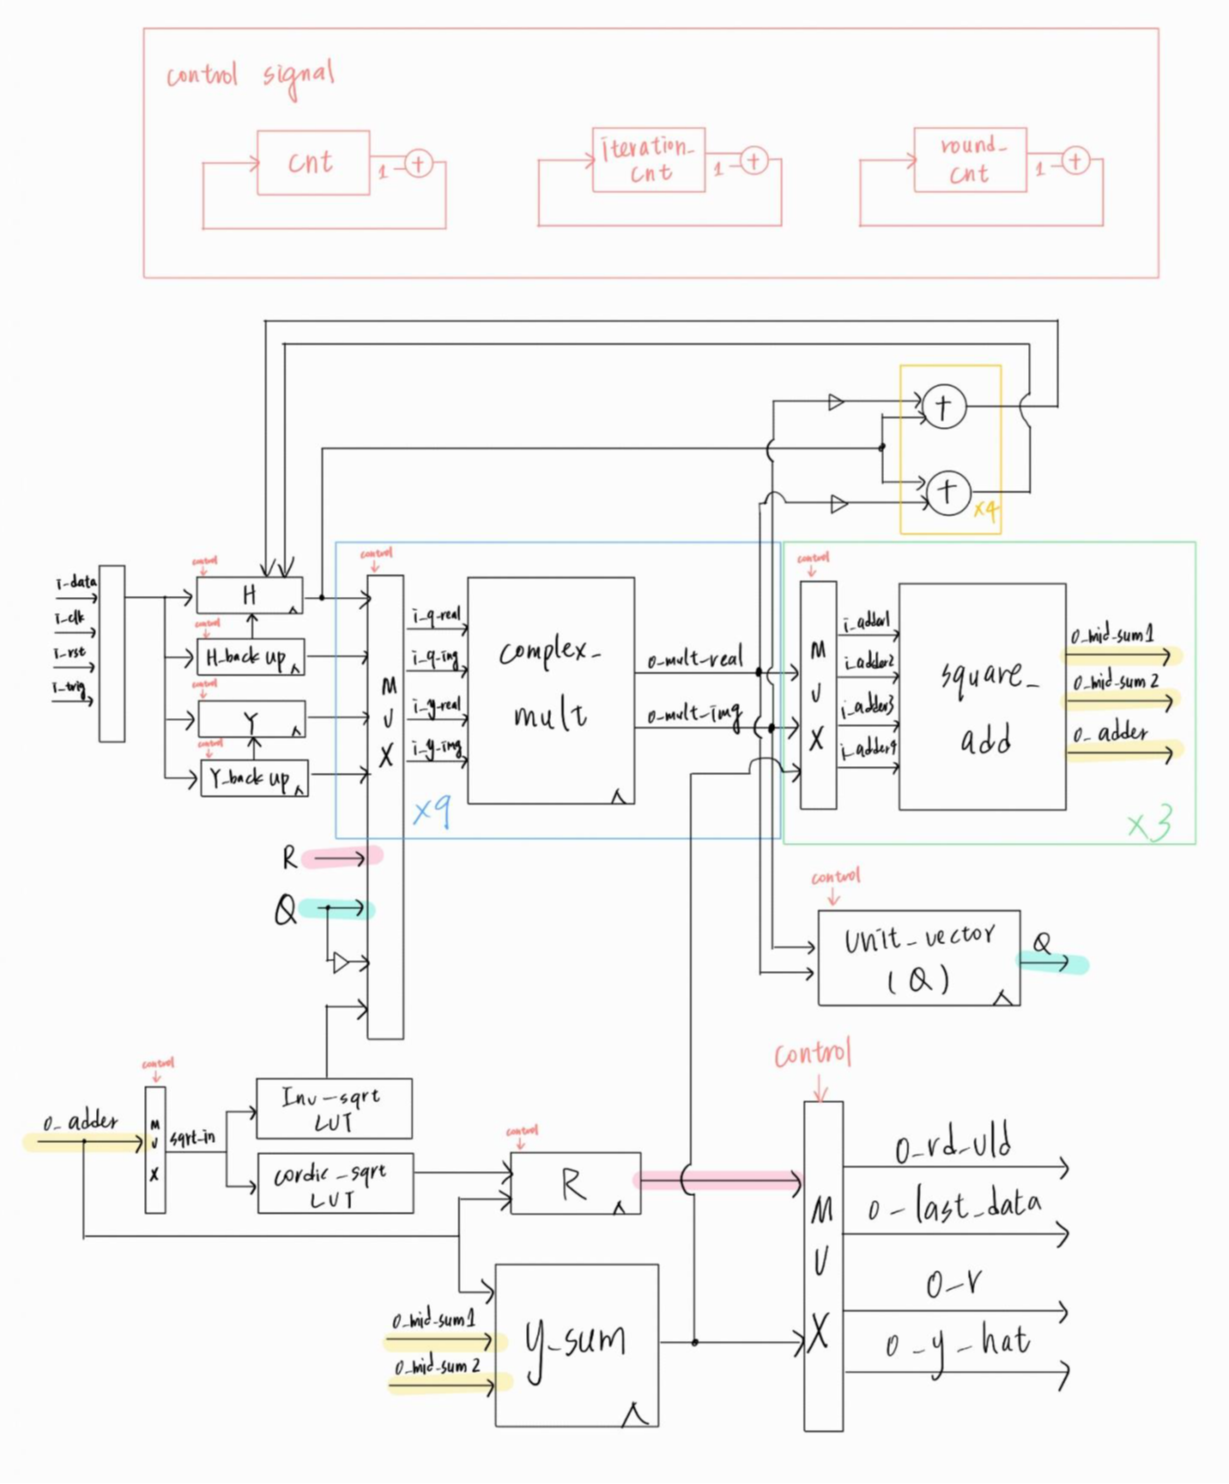 control signal
cnt
1
+
iteration_
cnt
1
+
round_
cnt
1
+
+
+
x4
i-data
i-clk
i-rst
i-trig
control
H
control
H-back up
control
Y
control
Y-back up
control
M
U
X
i-q-real
i-q-img
i-y-real
i-y-img
complex_
mult
x9
o-mult-real
o-mult-img
control
M
U
X
i-adder1
i-adder2
i-adder3
i-adder4
square_
add
x3
o-mid-sum1
o-mid-sum 2
o- adder
R
Q
control
unit-vector
(Q)
Q
o- adder
control
M
U
X
sqrt-in
Inv-sqrt
LUT
cordic-sqrt
LUT
control
R
o-mid-sum1
o-mid-sum 2
y-sum
control
M
U
X
o-rd-vld
o-last-data
o-r
o-y-hat